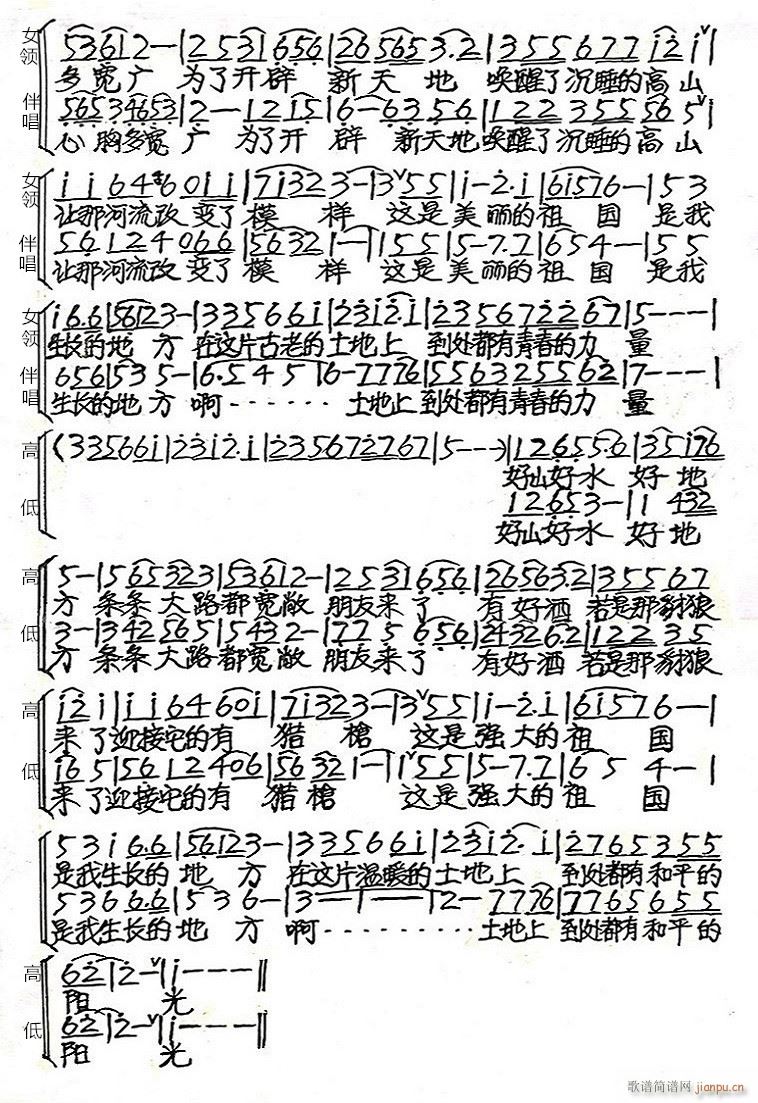 女领 5 3 6 1 2 - | 2 5 3 1 6 5 6 | 2 6 5 6 5 3 . 2 | 3 5 5 6 7 7 i 2 i |
多宽广 为了开辟 新天地 唤醒了沉睡的高山
伴唱 5 6 5 3 4 6 5 3 | 2 - 1 2 1 5 | 6 - 6 3 5 6 | 1 2 2 3 5 5 5 6 5 |
心胸多宽广 为了开辟 新天地唤醒了沉睡的高山
女领 i i 6 4 6 0 i i | 7 i 3 2 3 - | 3 5 5 | i - 2 . i | 6 i 5 7 6 - | 5 3
让那河流改变了模样 这是美丽的祖国 是我
伴唱 5 6 1 2 4 0 6 6 | 5 6 3 2 1 - | 1 5 5 | 5 - 7 . 7 | 6 5 4 - | 5 5
让那河流改变了模样 这是美丽的祖国 是我
女领 i 6 . 6 | 5 6 1 2 3 - | 3 3 5 6 6 i | 2 3 i 2 . i | 2 3 5 6 7 2 2 6 7 | 5 - - - |
生长的地方 在这片古老的土地上 到处都有青春的力量
伴唱 6 5 6 | 5 3 5 - | 6 . 5 4 5 | 6 - 7 7 7 6 | 5 5 6 3 2 5 5 6 2 | 7 - - - |
生长的地方 啊······ 土地上到处都有青春的力量
高 (3 3 5 6 6 i | 2 3 i 2 . i | 2 3 5 6 7 2 7 6 7 | 5 - - -) | 1 2 6 5 5 . 6 | 3 5 i 7 6
好山好水 好地
低 1 2 6 5 3 - | 1 4 3 2
好山好水 好地
高 5 - | 5 6 5 3 2 3 | 5 3 6 1 2 - | 2 5 3 1 6 5 6 | 2 6 5 6 3 . 2 | 3 5 5 6 7
方 条条大路都宽敞 朋友来了 有好酒 若是那豺狼
低 3 - | 3 4 2 5 6 5 | 5 4 3 2 - | 7 7 5 6 5 6 | 2 4 3 2 6 2 | 1 2 2 3 5
方 条条大路都宽敞 朋友来了 有好酒 若是那豺狼
高 i 2 i | i i 6 4 6 0 i | 7 i 3 2 3 - | 3 5 5 | i - 2 . i | 6 i 5 7 6 - |
来了迎接它的有 猎枪 这是强大的祖国
低 i 6 5 | 5 6 1 2 4 0 6 | 5 6 3 2 1 - | 1 5 5 | 5 - 7 . 7 | 6 5 4 - |
来了迎接它的有 猎枪 这是强大的祖国
5 3 i 6 . 6 | 5 6 1 2 3 - | 3 3 5 6 6 i | 2 3 i 2 . i | 2 7 6 5 3 5 5
是我生长的地方 在这片温暖的土地上 到处都有和平的
5 3 6 6 . 6 | 5 3 6 - | 3 - - | - - | 2 - 7 7 7 6 | 7 7 6 5 6 5 5
是我生长的地方 啊·········土地上 到处都有和平的
高 6 2 | 2 - | i - - - ||
阳光
低 6 2 | 2 - | i - - - ||
阳光
歌谱简谱网 jianpu.cn